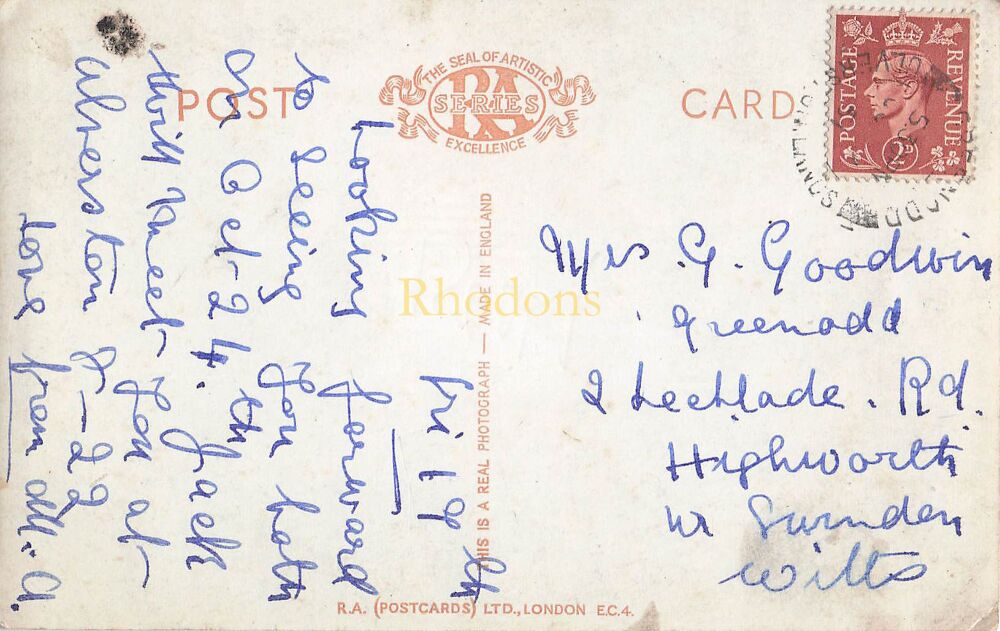 POST CARD
THE SEAL OF ARTISTIC
RA
SERIES
EXCELLENCE
POSTAGE REVENUE
2D
GREENODD
ULVERSTON
Fri 19th
Looking forward
to seeing you both
on Oct-24th. Jack
will meet you at
Ulverston 8-22
love from all. A.
Mrs. G. Goodwin
Greenodd
2 Lechlade. Rd.
Highworth
Nr Swindon
Wilts
THIS IS A REAL PHOTOGRAPH — MADE IN ENGLAND
Rhodons
R.A. (POSTCARDS) LTD., LONDON E.C.4.